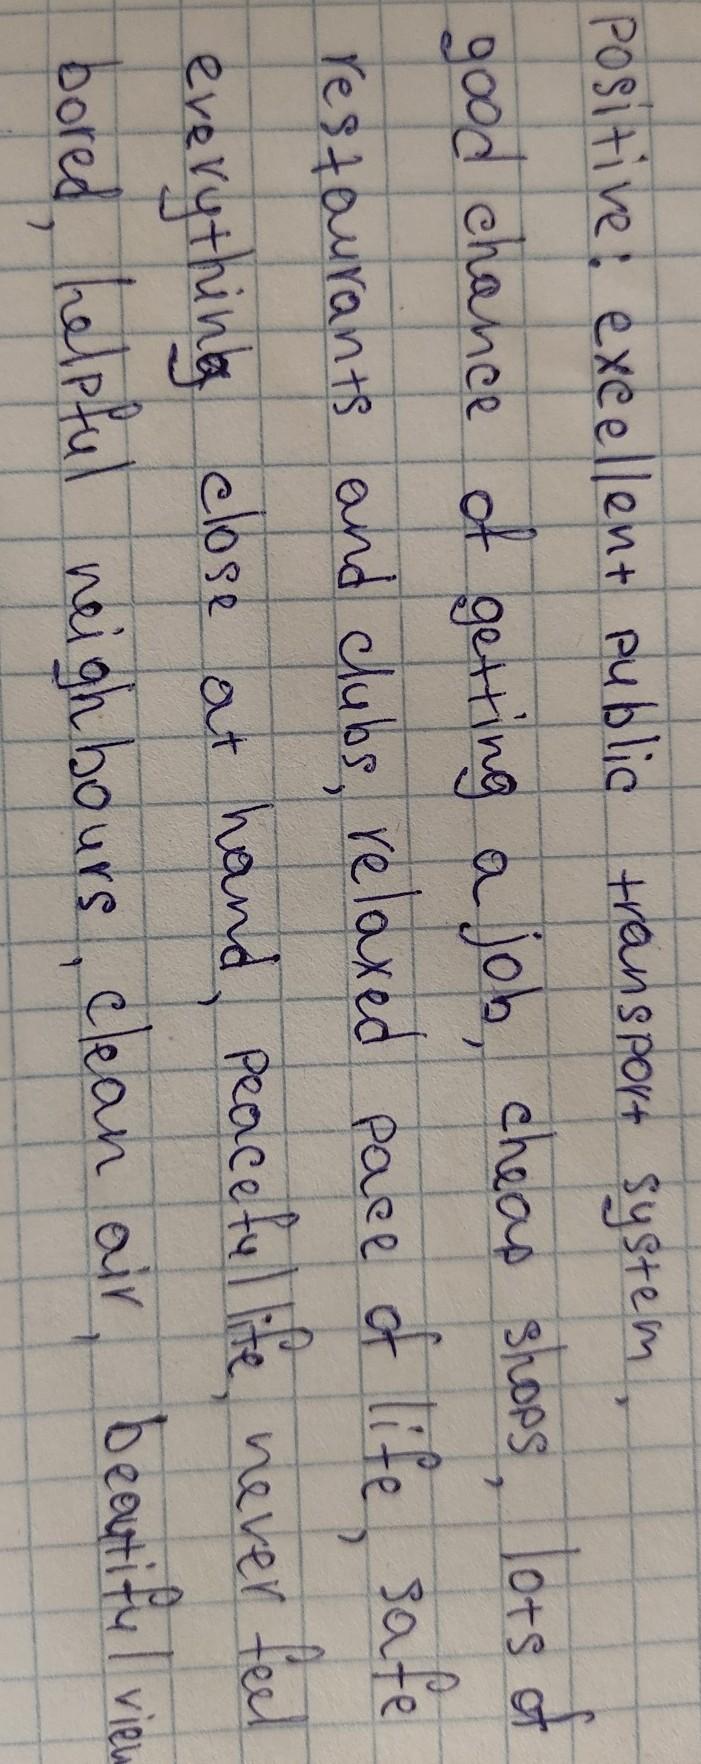 Positive: excellent public transport system,
good chance of getting a job, cheap shops, lots of
restaurants and clubs, relaxed pace of life, safe
everything close at hand, peaceful life, never feel
bored, helpful neighbours, clean air, beautiful view